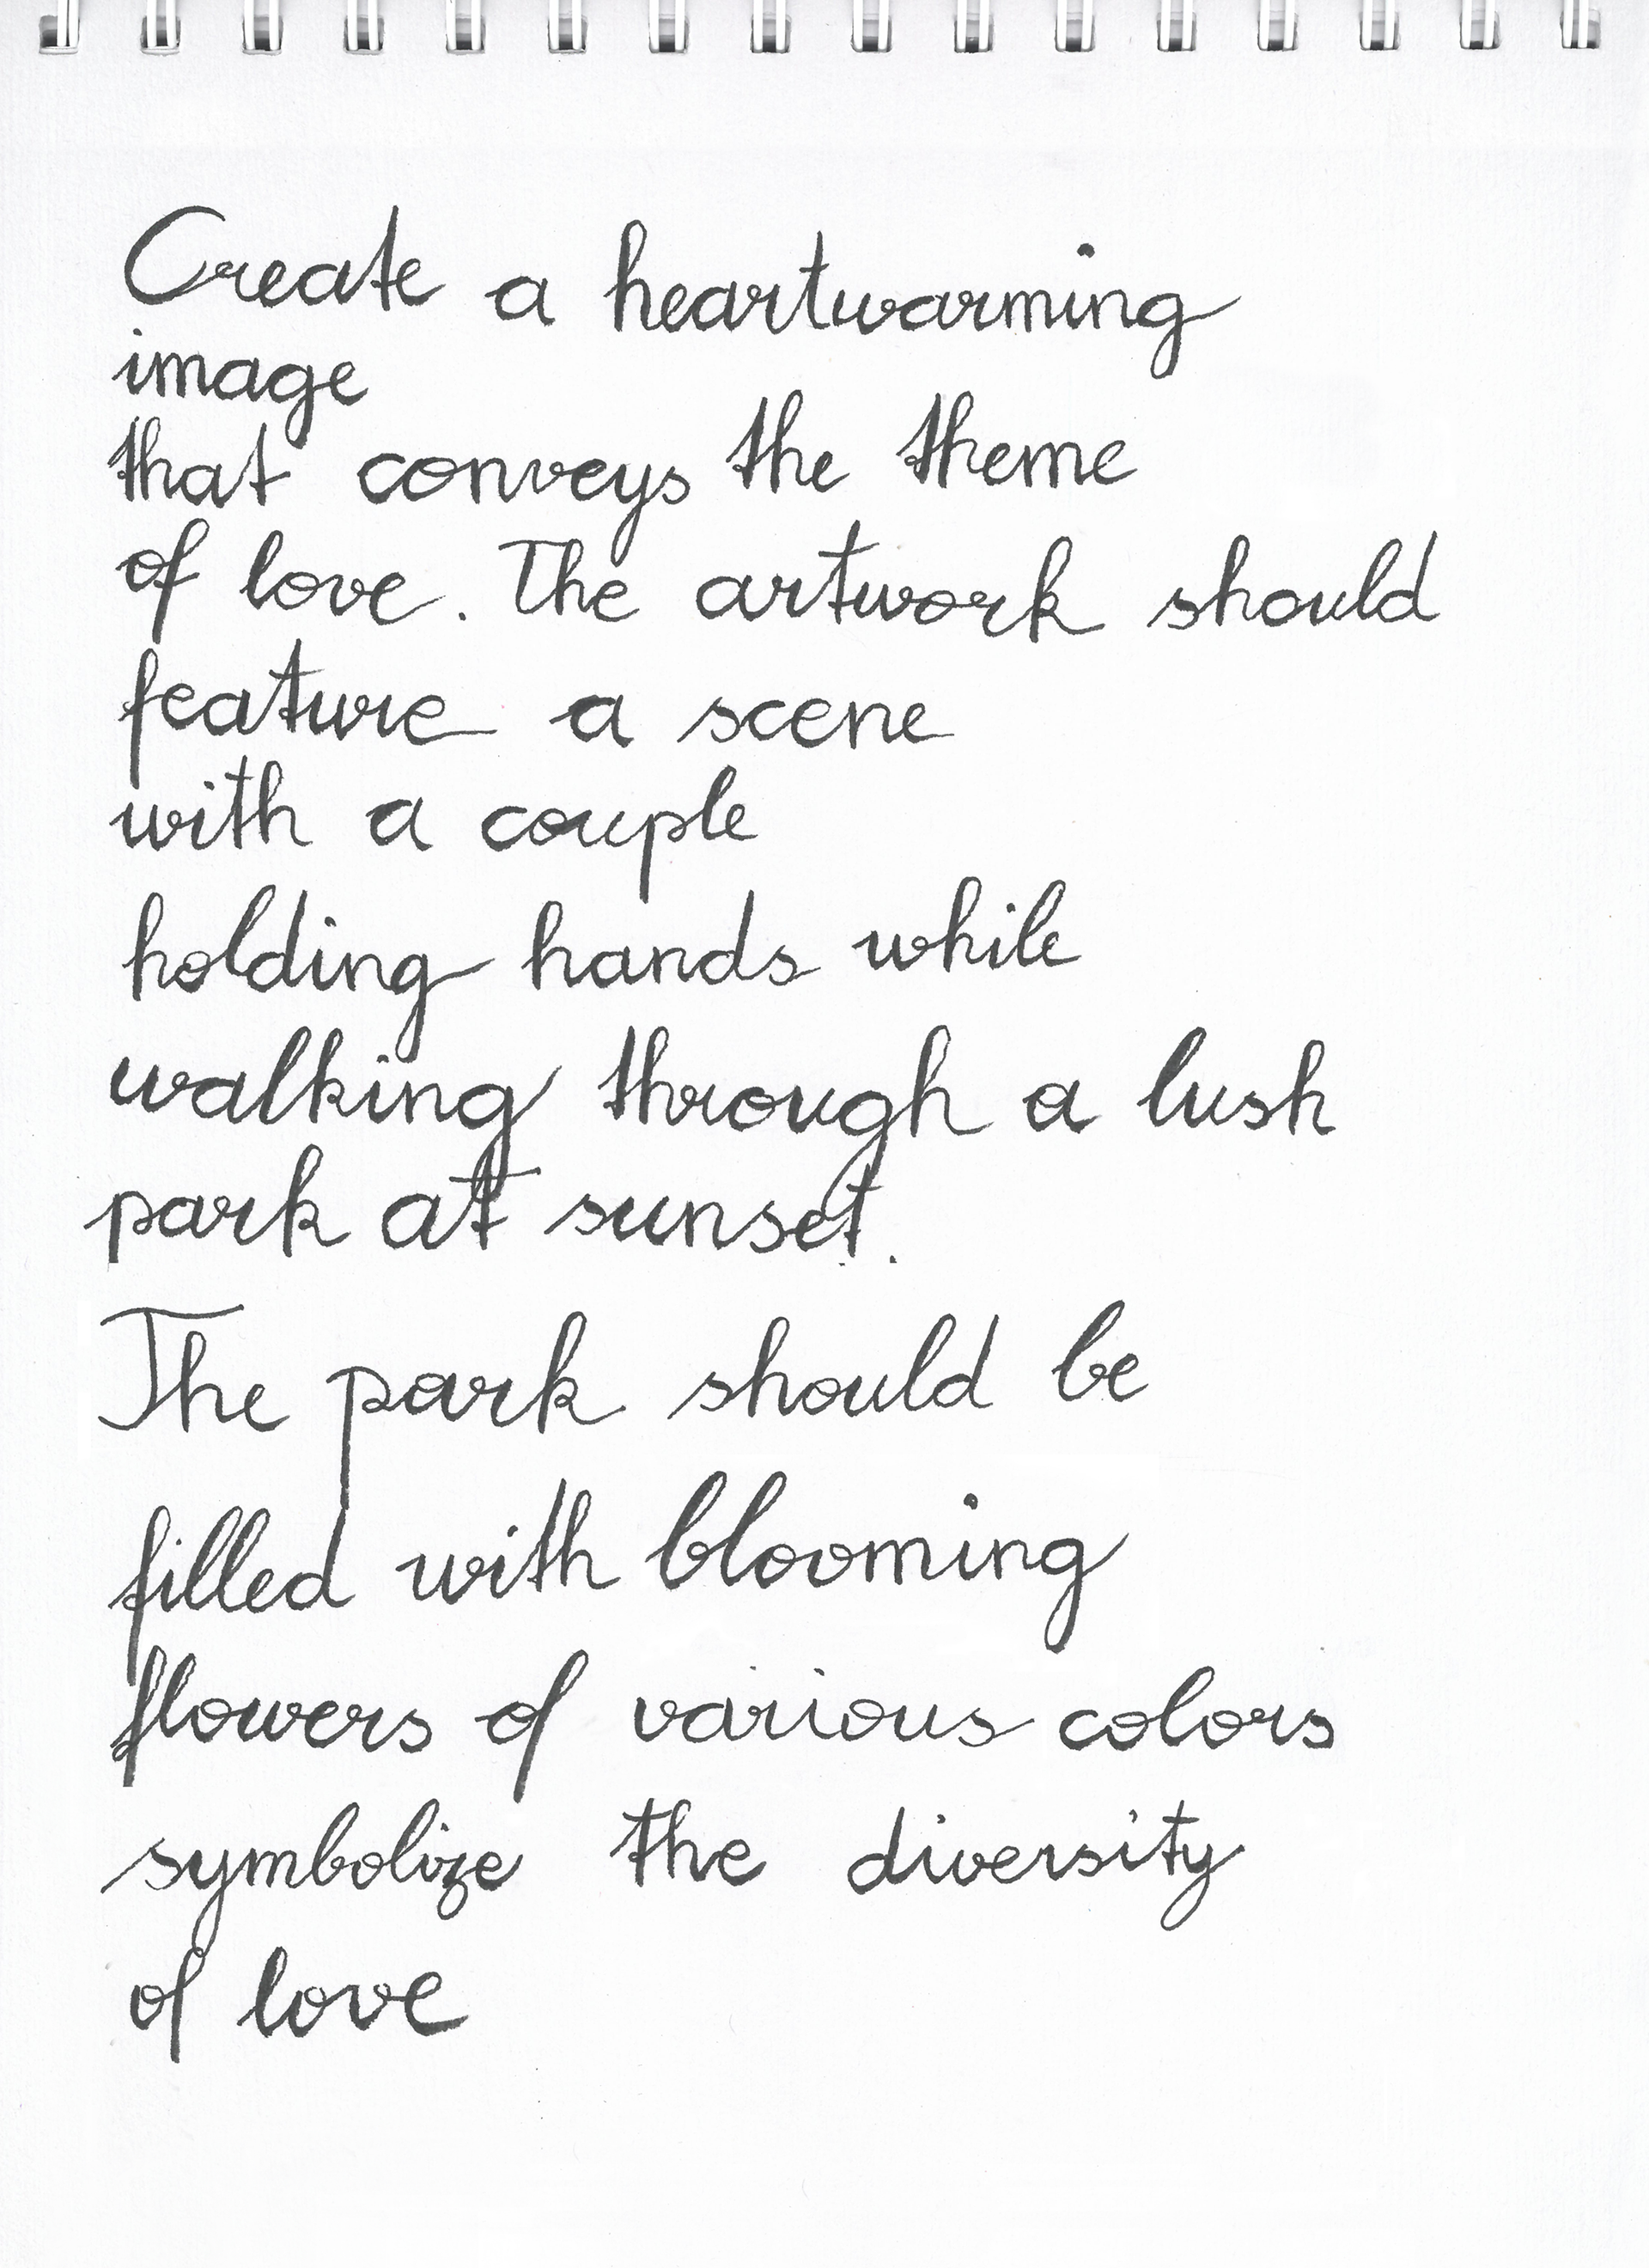 Create a heartwarming
image
that conveys the theme
of love. The artwork should
feature a scene
with a couple
holding hands while
walking through a lush
park at sunset.
The park should be
filled with blooming
flowers of various colors
symbolize the diversity
of love